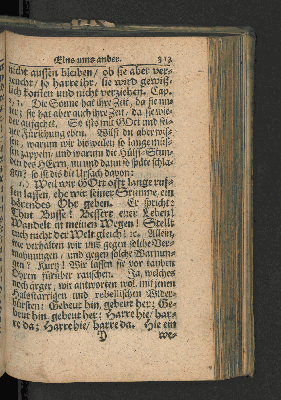 Eins ums ander. 313
nicht aussen bleiben / ob sie aber ver-
zeucht / so harre ihr / sie wird gewiß-
lich kommen und nicht verziehen. Cap.
2, 3. Die Sonne hat ihre Zeit / da sie un-
ter; sie hat aber auch ihre Zeit / da sie wie-
der aufgehet. So ists mit GOtt und sei-
ner Fürsehung eben. Wilst du aber wis-
sen / warum wir bisweilen so lange müs-
sen zappeln / und warum die Hülff-Stun-
den des HErrn / nu und dann so späte schla-
gen? so ist diß die Ursach davon:
1.) Weil wir GOtt offt lange ruf-
fen lassen, ehe wir seiner Stimme ein
hörendes Ohr geben. Er spricht:
Thut Busse! Bessert euer Leben!
Wandelt in meinen Wegen! Stellt
euch nicht der Welt gleich! ꝛc. Allein,
wie verhalten wir uns gegen solche Ver-
mahnungen / und gegen solche Warnun-
gen? Kurtz! Wir lassen sie vor tauben
Ohren fürüber rauschen. Ja, welches
noch ärger, wir antworten wol mit jenen
Halsstarrigen und rebellischen Wider-
bürsten: Gebeut hin, gebeut her; Ge-
beut hin, gebeut her: Harre hie / har-
re da; Harre hie / harre da. Hie ein
we-